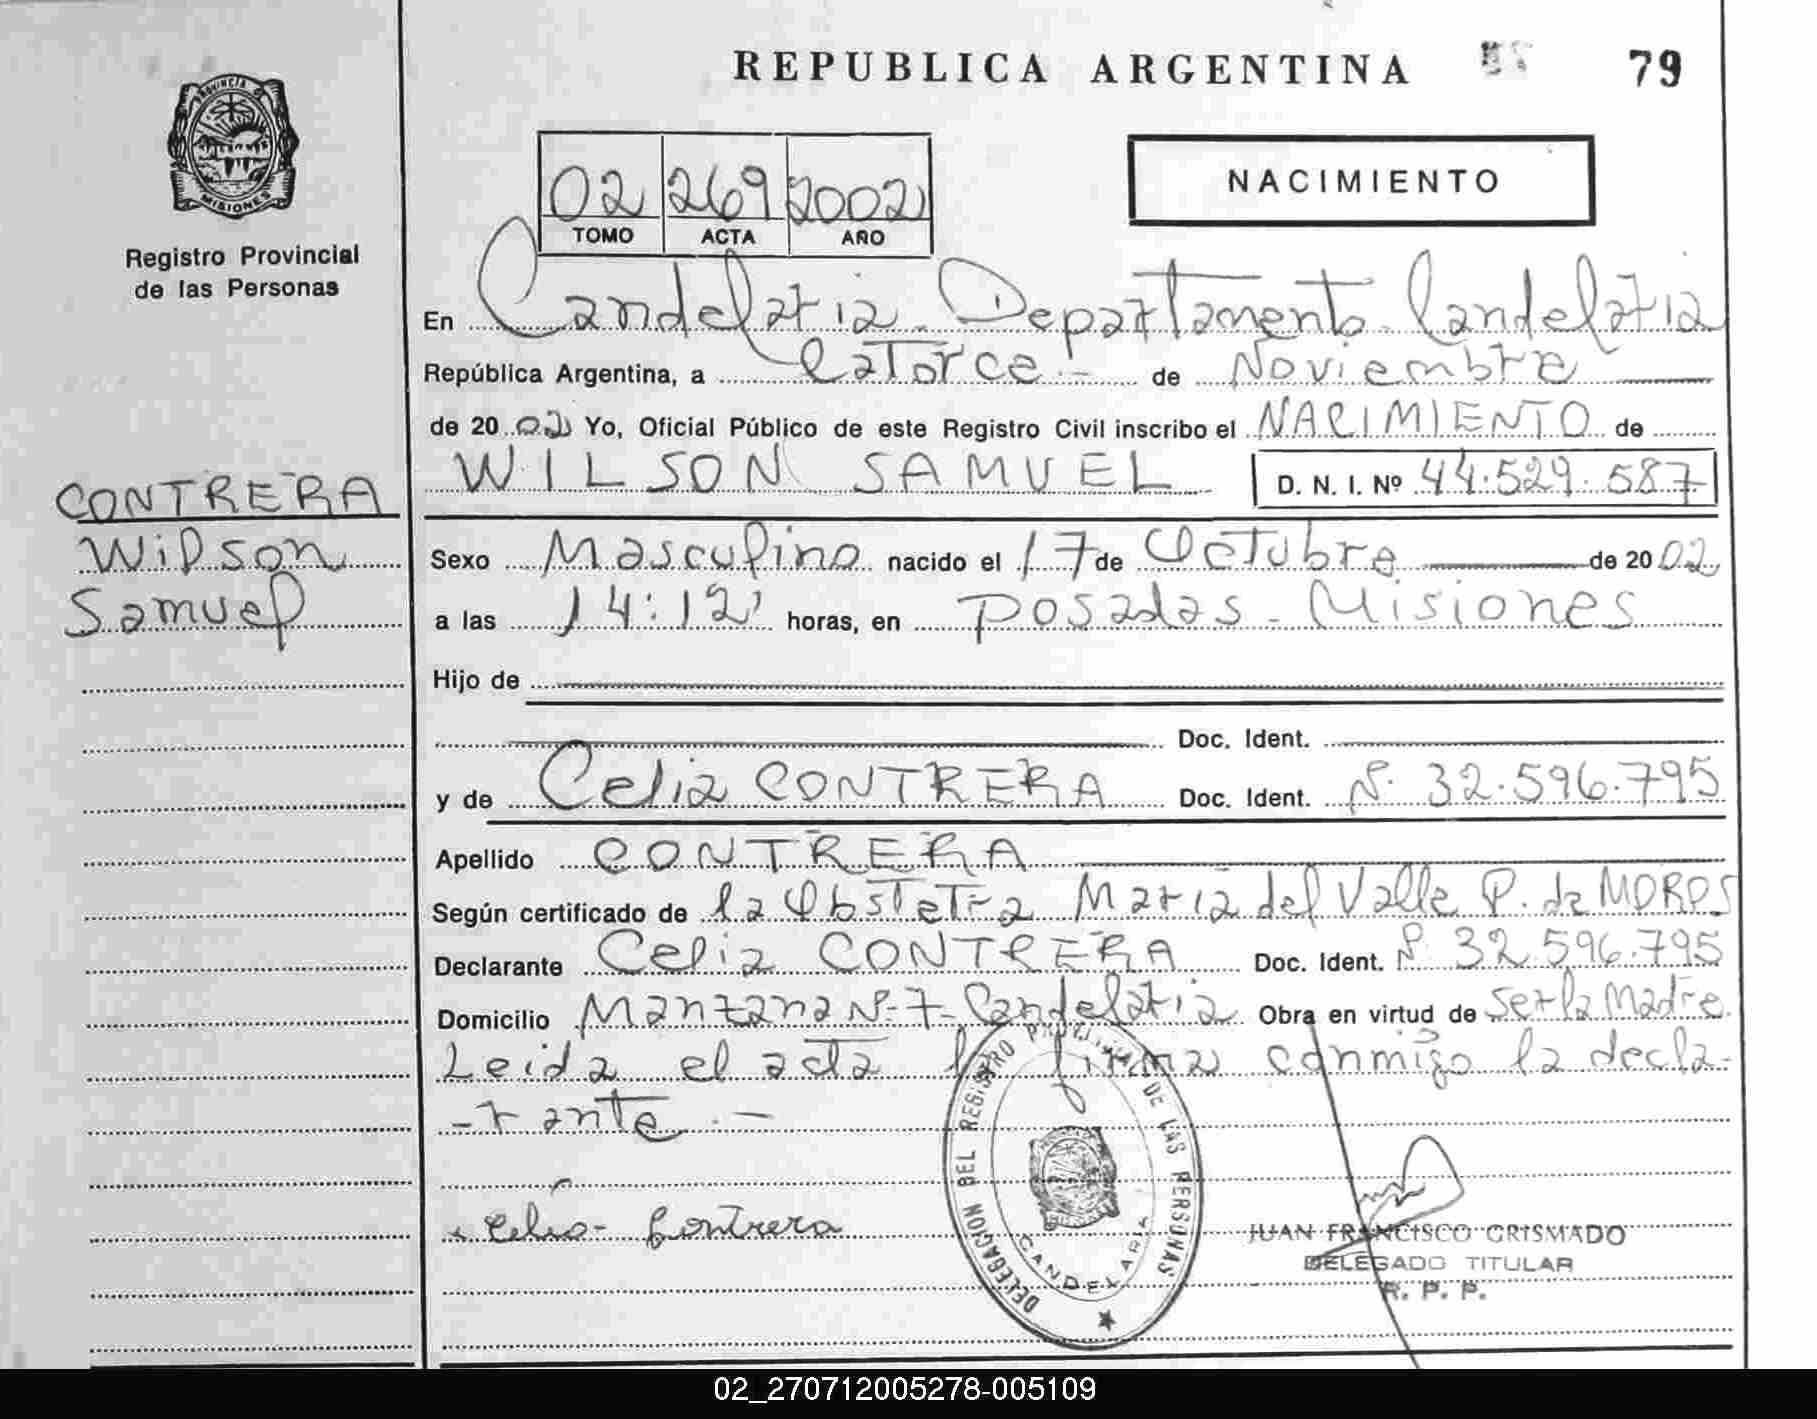 REPUBLICA ARGENTINA 79
PROVINCIA D
MISIONES
Registro Provincial
de las Personas
02 269 2002
TOMO ACTA AÑO
NACIMIENTO
En Candelaria - Departamento Candelaria
República Argentina, a Catorce.- de Noviembre
de 2002 Yo, Oficial Público de este Registro Civil inscribo el NACIMIENTO de
WILSON SAMUEL D. N. I. Nº 44.529.587
CONTRERA
Wilson
Samuel
Sexo Masculino nacido el 17 de Octubre de 2002
a las 14:12' horas, en Posadas - Misiones
Hijo de
Doc. Ident.
y de Celia CONTRERA Doc. Ident. Nº 32.596.795
Apellido CONTRERA
Según certificado de la Obstetra Maria del Valle P. de MOROS
Declarante Celia CONTRERA Doc. Ident. Nº 32.596.795
Domicilio Manzana Nº 7 - Candelaria Obra en virtud de Ser la Madre.
Leida el acta la firma conmigo la decla-
-rante.-
Celia- Contrera
DELEGACION DEL REGISTRO PROVINCIAL DE LAS PERSONAS
CANDELARIA
JUAN FRANCISCO GRISMADO
DELEGADO TITULAR
R. P. P.
02_270712005278-005109